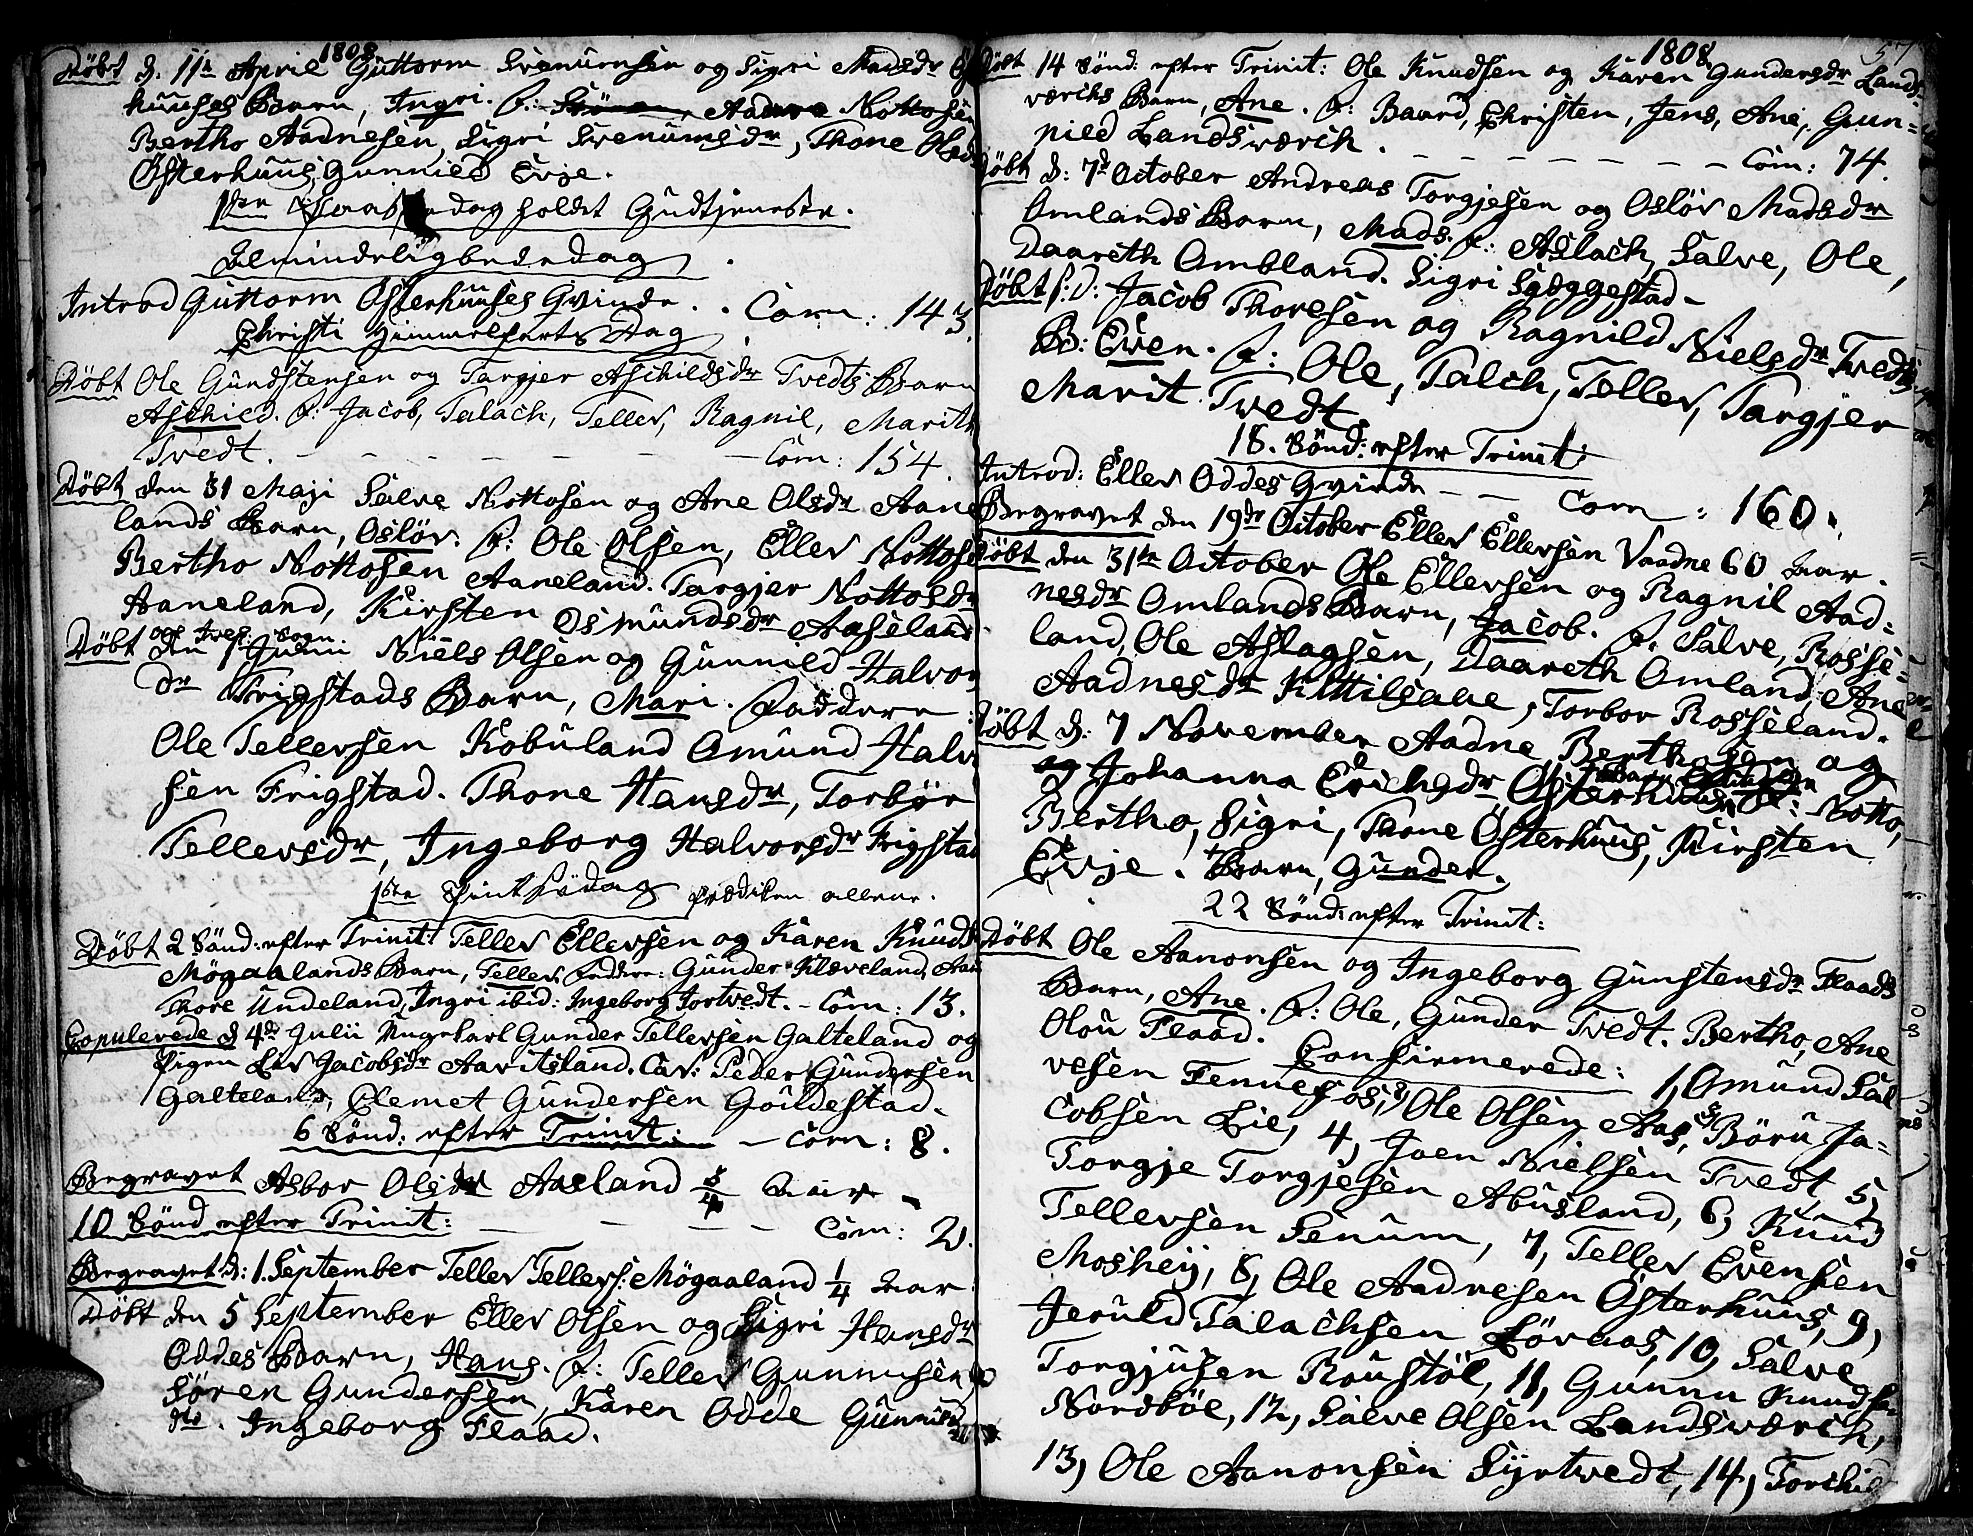 1808
Döbt d. 11te April Guttorm Svenumsen og Sigri Madsdr Öster
huuses Barn, Ingri. F: Aadne Nottosen
Bertho Aadnesen, Sigri Svenumsdr, Thone Olsdr
Österhuus, Gunnild Evje.
1ste Paaskedag holdet Gudtjeneste.
Almindeligbededag.
Introd Guttorm Österhuuses Qvinde. . Com: 143
Christi Himmelfarts Dag
Döbt Ole Gundstensen og Targjer Aschildsdr Tvedts Barn
Aschild. F: Jacob, Talach, Tellef, Ragnil, Marith
Tvedt. - - - - - Com: 154.
Döbt den 31 Maji Salve Nottosen og Ane Olsdr Aane
lands Barn, Oslöv. F: Ole Olsen, Ellef Nottose
Bertho Nottosen Aaneland. Targjer Nottosdr
Aaneland, Kirsten Osmundsdr Aaseland
Döbt den Junii Niels Olsen og Gunnild Halvor
dr Frigstads Barn, Mari. Faddere:
Ole Tellefsen Kobuland Omund Halv
sen Frigstad. Thone Hansdr, Torbör
Tellefsdr, Ingeborg Halvorsdr Frigstad
1ste Pintsedag Prædiken allene.
Döbt 2 Sönd: efter Trinit: Tellef Ellefsen og Karen Knuds
Mögaalands Barn, Tellef, Faddere: Gunder Klæveland, Aan
Thore Undeland, Ingri ibid: Ingeborg Tortvedt. - Com: 13.
Copulerede d 4de Julii Ungekarl Gunder Tellefsen Galteland og
Pigen Liv Jacobsdr Aavitsland. Cav: Peder Gundersen
Galteland, Clemet Gundersen Göildestad.
6 Sönd: efter Trinit: - Com: 8.
Begravet Asbor Olsdr Aasland 3/4 Aar.
10 Sönd efter Trinit: - - - - Com: 21.
Begravet d: 1. September Tellef Tellefs: Mögaaland 1/4 Aar
Döbt den 5 September Ellef Olsen og Sigri Hansdr
Oddes Barn, Hans. F: Tellef Gunnusen
Sören Gundersen, Karen Odde Gunnild
dr. Ingeborg Flaad.
1808. 57
Döbt 14 Sönd: efter Trinit: Ole Knudsen og Karen Gundersdr Lands-
værchs Barn, Ane. F: Baard, Christen, Jens, Ane, Gun=
nild Landsværch. - - - - - - - Com: 74.
Döbt d: 7d October Andreas Torgjesen og Oslöv Madsdr
Omlands Barn, Mads. F: Aslach, Salve, Ole,
Daareth Ombland. Sigri Syggestad.
Döbt s: d: Jacob Thoresen og Ragnild Nielsdr Tvedts
B: Even. F: Ole, Talch, Tellef, Targjer
Marit Tvedt
18. Sönd: efter Trinit:
Introd: Ellef Oddes Qvinde - - Com: 160.
Begravet den 19de October Ellef Ellefsen Vaadne 60 Aar.
Döbt den 31te October Ole Ellefsen og Ragnil Aad=
nesdr Omlands Barn, Jacob. F. Salve, Rosse=
land, Ole Aslagsen, Daareth Omland, Ane
Aadnesdr Kittilsaae, Torbor Rosseland.
Döbt d: 7 November Aadne Berthosen og
Johanna Erichsdr Österhuus F: Notto,
Bertho, Sigri, Thone Österhuus, Kirsten
Evje. + Barn, Gunder.
22 Sönd: efter Trinit:
Döbt Ole Aanonsen og Ingeborg Gunstensdr Flaads
Barn, Ane. F: Ole, Gunder Tvedt. Bertho, Ane
Olou Flaad.
Confirmerede: 1, Omund Sal
vesen Fennefos, 2, Ole Olsen Aas, 3, Böru Ja=
cobsen Lie, 4, Joen Nielsen Tvedt, 5,
Torgje Torgjesen Abusland, 6, Knud
Tellefsen Senum, 7, Tellef Evensen
Moshej, 8, Ole Aadnesen Österhuus, 9,
Jeruld Talachsen Lövaas, 10, Salve
Torgjusen Roustöl, 11, Gunnu Knudse
Nordböe, 12, Salve Olsen Landsværch,
13, Ole Aanonsen Syrtvedt, 14, Torchil